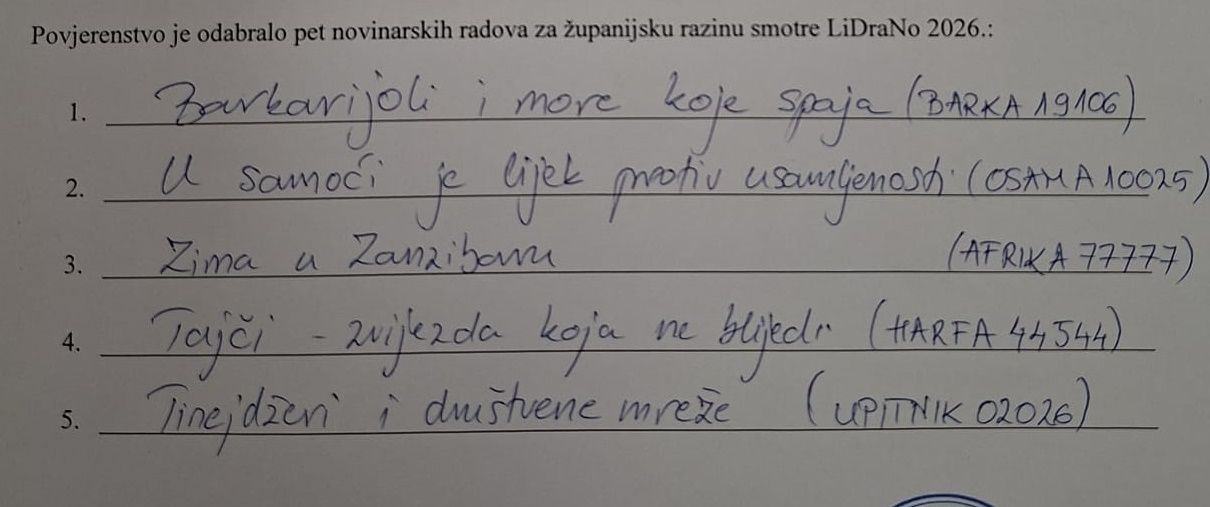 Povjerenstvo je odabralo pet novinarskih radova za županijsku razinu smotre LiDraNo 2026.:
1. Barkarijoli i more koje spaja (BARKA 19106)
2. U samoći je lijek protiv usamljenosti (OSAMA 10025)
3. Zima u Zanzibaru (AFRIKA 77777)
4. Tajči - zvijezda koja ne blijedi (HARFA 44544)
5. Tinejdžeri i društvene mreže (UPITNIK 02026)